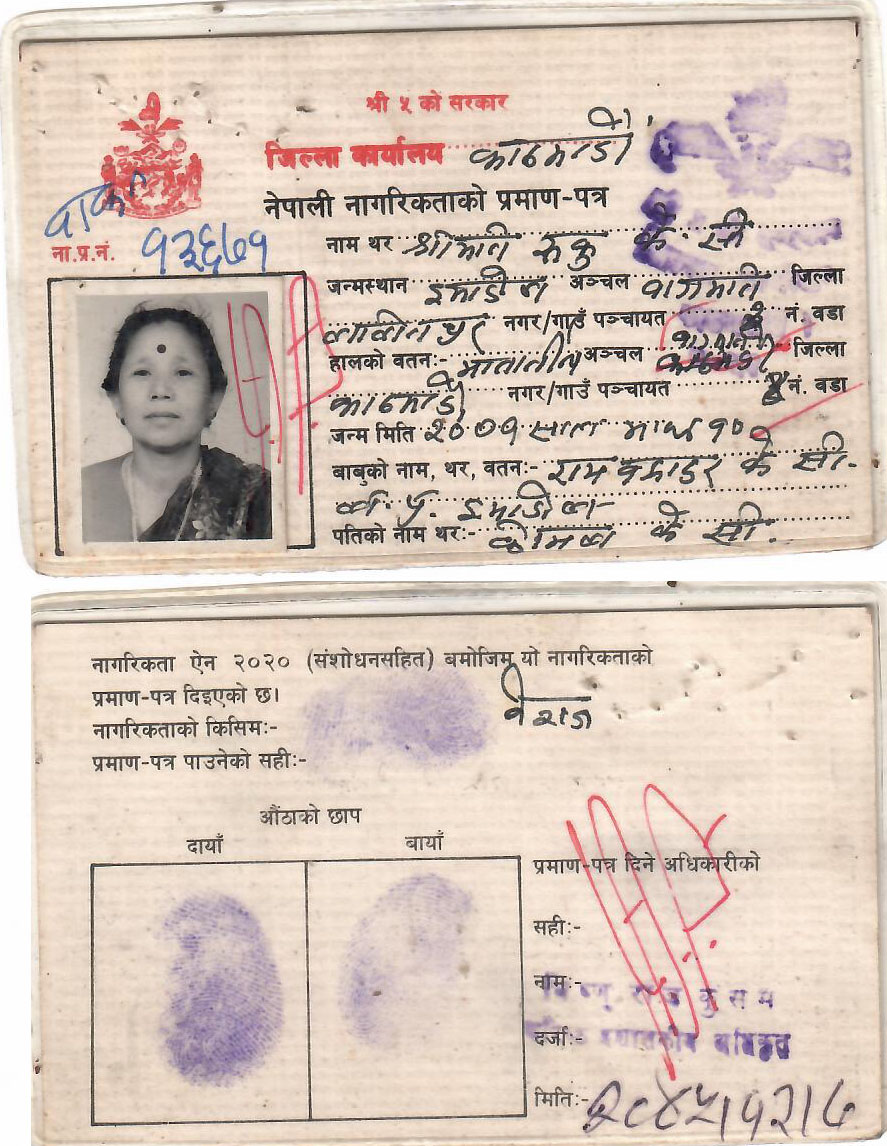 श्री ५ को सरकार
जिल्ला कार्यालय काठमाडौं
नेपाली नागरिकताको प्रमाण-पत्र
ना.प्र.नं. १३६७१
नाम थर श्रीमति रुकु के. सी
जन्मस्थान इमाडोल अञ्चल वागमति जिल्ला
ललितपुर नगर/गाउँ पञ्चायत नं. वडा
हालको वतन:- मातातीर्थ अञ्चल जिल्ला
काठमाडौं नगर/गाउँ पञ्चायत नं. वडा
जन्म मिति २००१ साल माघ १०
बाबुको नाम, थर, वतन:- राम के सी.
ल. पु. इमाडोल
पतिको नाम थर:- के सी.
नागरिकता ऐन २०२० (संशोधनसहित) बमोजिम यो नागरिकताको
प्रमाण-पत्र दिइएको छ।
नागरिकताको किसिम:- वंशज
प्रमाण-पत्र पाउनेको सही:-
औंठाको छाप
दायाँ बायाँ
प्रमाण-पत्र दिने अधिकारीको
सही:-
नाम:- राज कुसम
दर्जा:-
मिति:- २०४५।१२।७